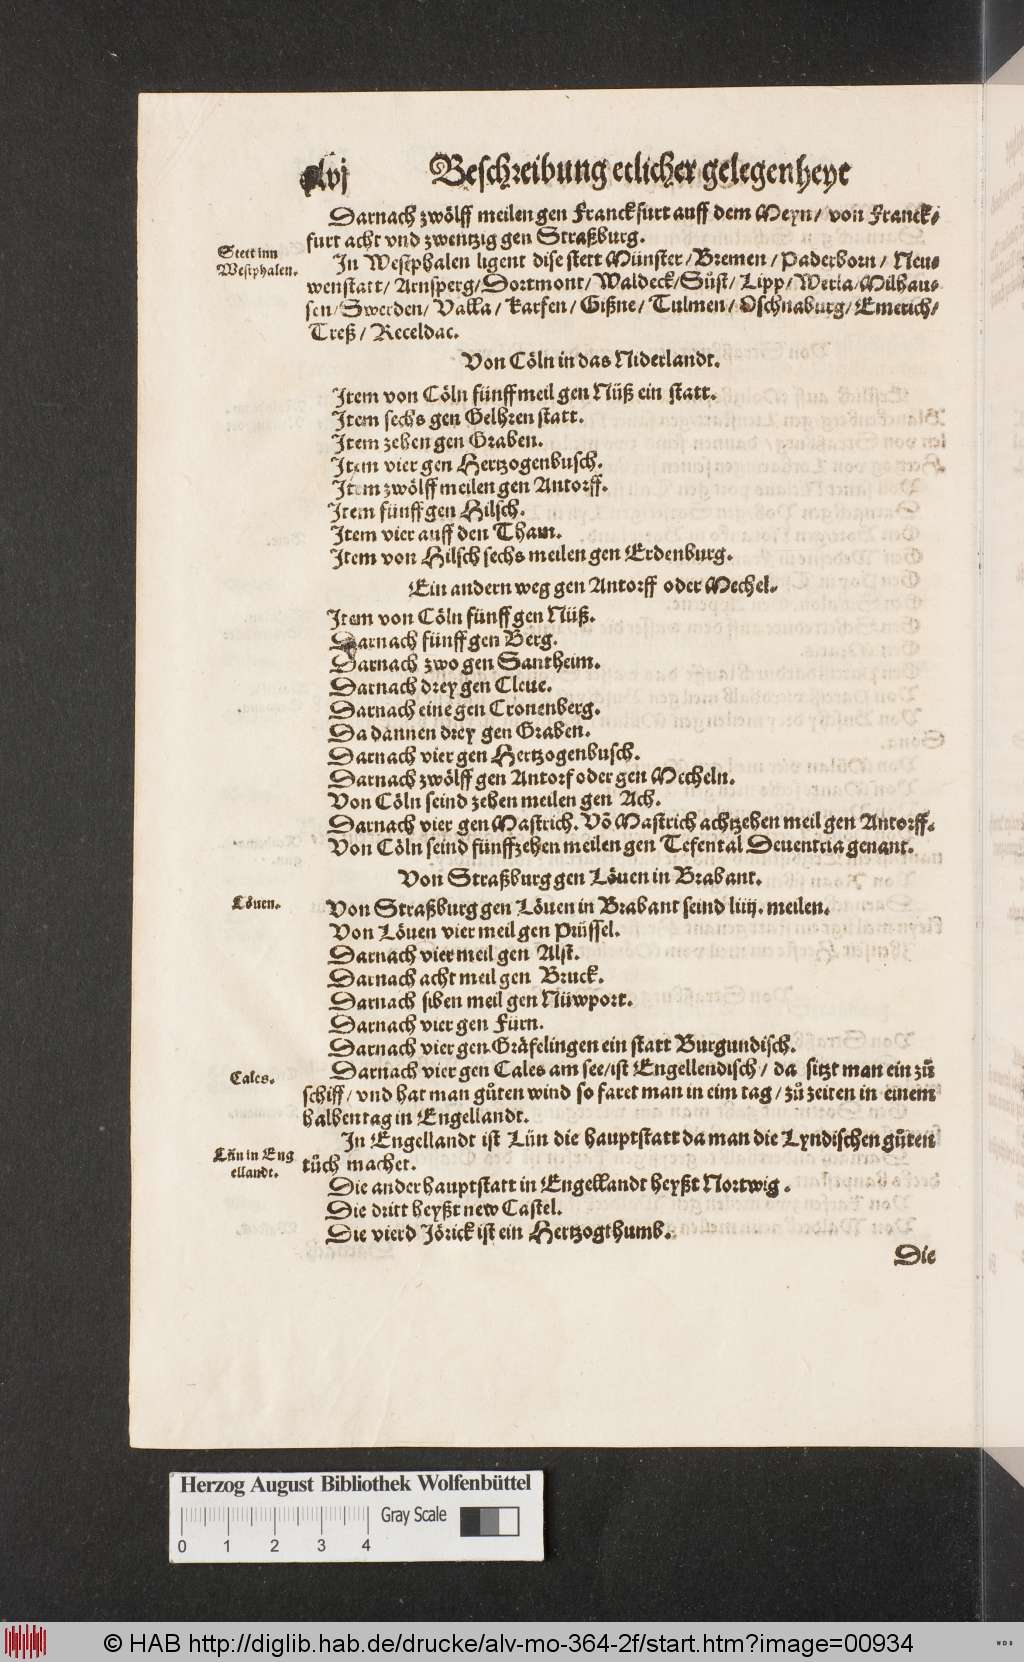 Beschreibung etlicher gelegenheyt
Darnach zwölff meilen gen Franckfurt auff dem Meyn/ von Franck-
furt acht vnd zwentzig gen Straßburg.
Stett inn
Westphalen.
In Westphalen ligent dise stett Münster/ Bremen/ Paderborn/ Neu-
wenstatt/ Arnsperg/ Dortmont/ Waldeck/ Süst/ Lipp/ Werla/ Milhau-
sen/ Swerden/ Valla/ Karsen/ Gißne/ Tulmen/ Oschnaburg/ Emerich/
Treß/ Receldac.
Von Cöln in das Niderlandt.
Item von Cöln fünff meil gen Nüß ein statt.
Item sechs gen Gelhren statt.
Item zehen gen Graben.
Item vier gen Hertzogenbusch.
Item zwölff meilen gen Antorff.
Item fünff gen Hilsch.
Item vier auff den Tham.
Item von Hilsch sechs meilen gen Erdenburg.
Ein andern weg gen Antorff oder Mechel.
Item von Cöln fünff gen Nüß.
Darnach fünff gen Berg.
Darnach zwo gen Santheim.
Darnach drey gen Cleue.
Darnach eine gen Cronenberg.
Da dannen drey gen Graben.
Darnach vier gen Hertzogenbusch.
Darnach zwölff gen Antorf oder gen Mecheln.
Von Cöln seind zehen meilen gen Ach.
Darnach vier gen Mastrich. Võ Mastrich achtzehen meil gen Antorff.
Von Cöln seind fünffzehen meilen gen Tefental Deuentria genant.
Von Straßburg gen Löuen in Brabant.
Löuen.
Von Straßburg gen Löuen in Brabant seind liiij. meilen.
Von Löuen vier meil gen Prüssel.
Darnach vier meil gen Alst.
Darnach acht meil gen Bruck.
Darnach siben meil gen Nüwport.
Darnach vier gen Fürn.
Darnach vier gen Gräfelingen ein statt Burgundisch.
Cales.
Darnach vier gen Cales am see/ ist Engellendisch/ da sitzt man ein zů
schiff/ vnd hat man gůten wind so faret man in eim tag/ zů zeiten in einem
halben tag in Engellandt.
Lün in Eng
ellandt.
In Engellandt ist Lün die hauptstatt da man die Lyndischen gůten
tůch machet.
Die ander hauptstatt in Engellandt heyßt Nortwig.
Die dritt heyßt new Castel.
Die vierd Jörick ist ein Hertzogthumb.
Die
Herzog August Bibliothek Wolfenbüttel
Gray Scale
0 1 2 3 4
© HAB http://diglib.hab.de/drucke/alv-mo-364-2f/start.htm?image=00934